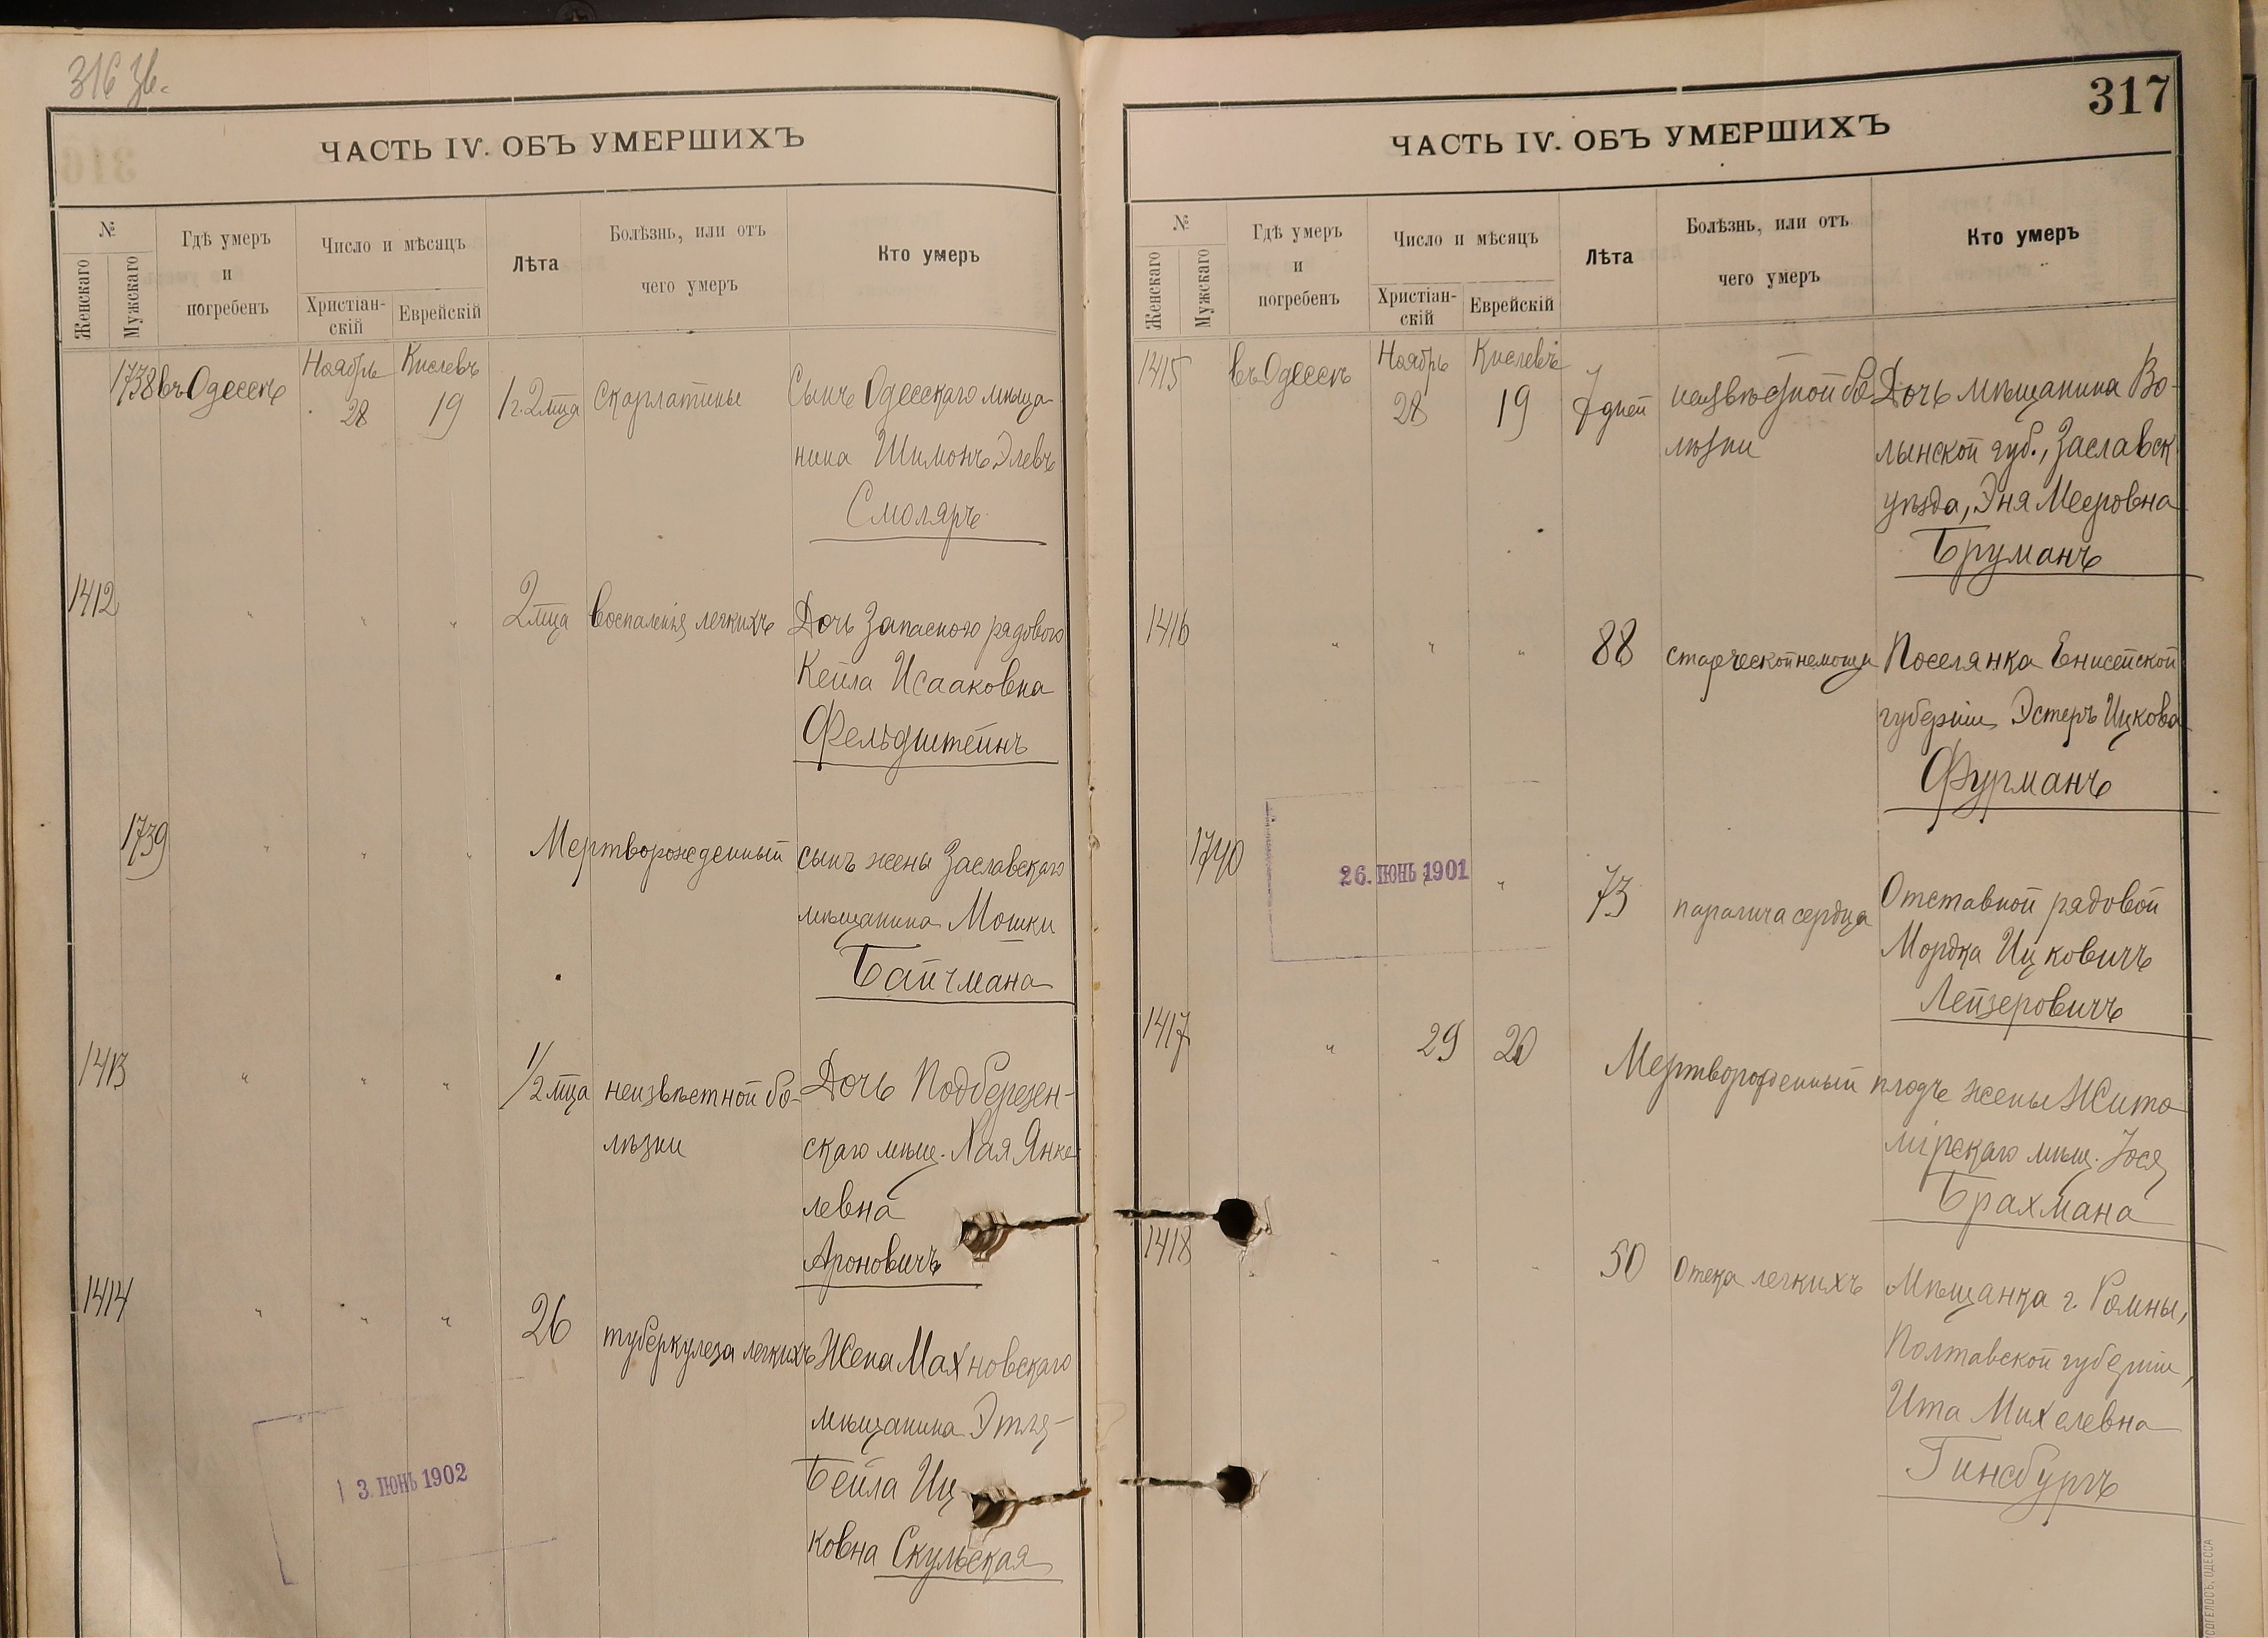 316 зв.
ЧАСТЬ IV. ОБЪ УМЕРШИХЪ
№
Женскаго
Мужскаго
Гдѣ умеръ
и
погребенъ
Число и мѣсяцъ
Христіан-
скій
Еврейскій
Лѣта
Болѣзнь, или отъ
чего умеръ
Кто умеръ
1738 въ Одессѣ Ноябрь 28 Кислевъ 19 1 г. 2 мца скарлатины Сынъ Одесскаго мѣща
нина Шимонъ Элевъ
Смоляръ
1412 " " " 2 мца воспаленія легкихъ Дочь Запасного рядового
Кейла Исааковна
Фельдштейнъ
1739 " " " Мертворожденный сынъ жены Заславскаго
мѣщанина Мошки
Байчмана
1413 " " " 1/2 мца неизвѣстной бо- Дочь Подберезен-
лѣзни скаго мѣщ. Хая Янке
левна
Ароновичъ
1414 " " " 26 туберкулеза легкихъ Жена Махновскаго
мѣщанина Этля-
Бейла Иц
ковна Скульская
13. ІЮНЬ 1902
317
ЧАСТЬ IV. ОБЪ УМЕРШИХЪ
№
Женскаго
Мужскаго
Гдѣ умеръ
и
погребенъ
Число и мѣсяцъ
Христіан-
скій
Еврейскій
Лѣта
Болѣзнь, или отъ
чего умеръ
Кто умеръ
1415 въ Одессѣ Ноябрь 28 Кислевъ 19 7 дней неизвѣстной бо Дочь мѣщанина Во-
лѣзни лынской губ., Заславск
уѣзда, Эня Мееровна
Бруманъ
1416 " " " 88 старческой немощи Поселянка Енисейской
губерніи Эстеръ Ицкова
Фурманъ
1740 26. ІЮНЬ 1901 " 73 паралича сердца Отставной рядовой
Мордка Ицковичъ
Лейзеровичъ
1417 " 29 20 Мертворожденный плодъ жены Жито
мірскаго мѣщ. Іося
Брахмана
1418 " " " 50 Отека легкихъ Мѣщанка г. Ромны,
Полтавской губерніи,
Ита Михелевна
Гинсбургъ
ОДЕССА